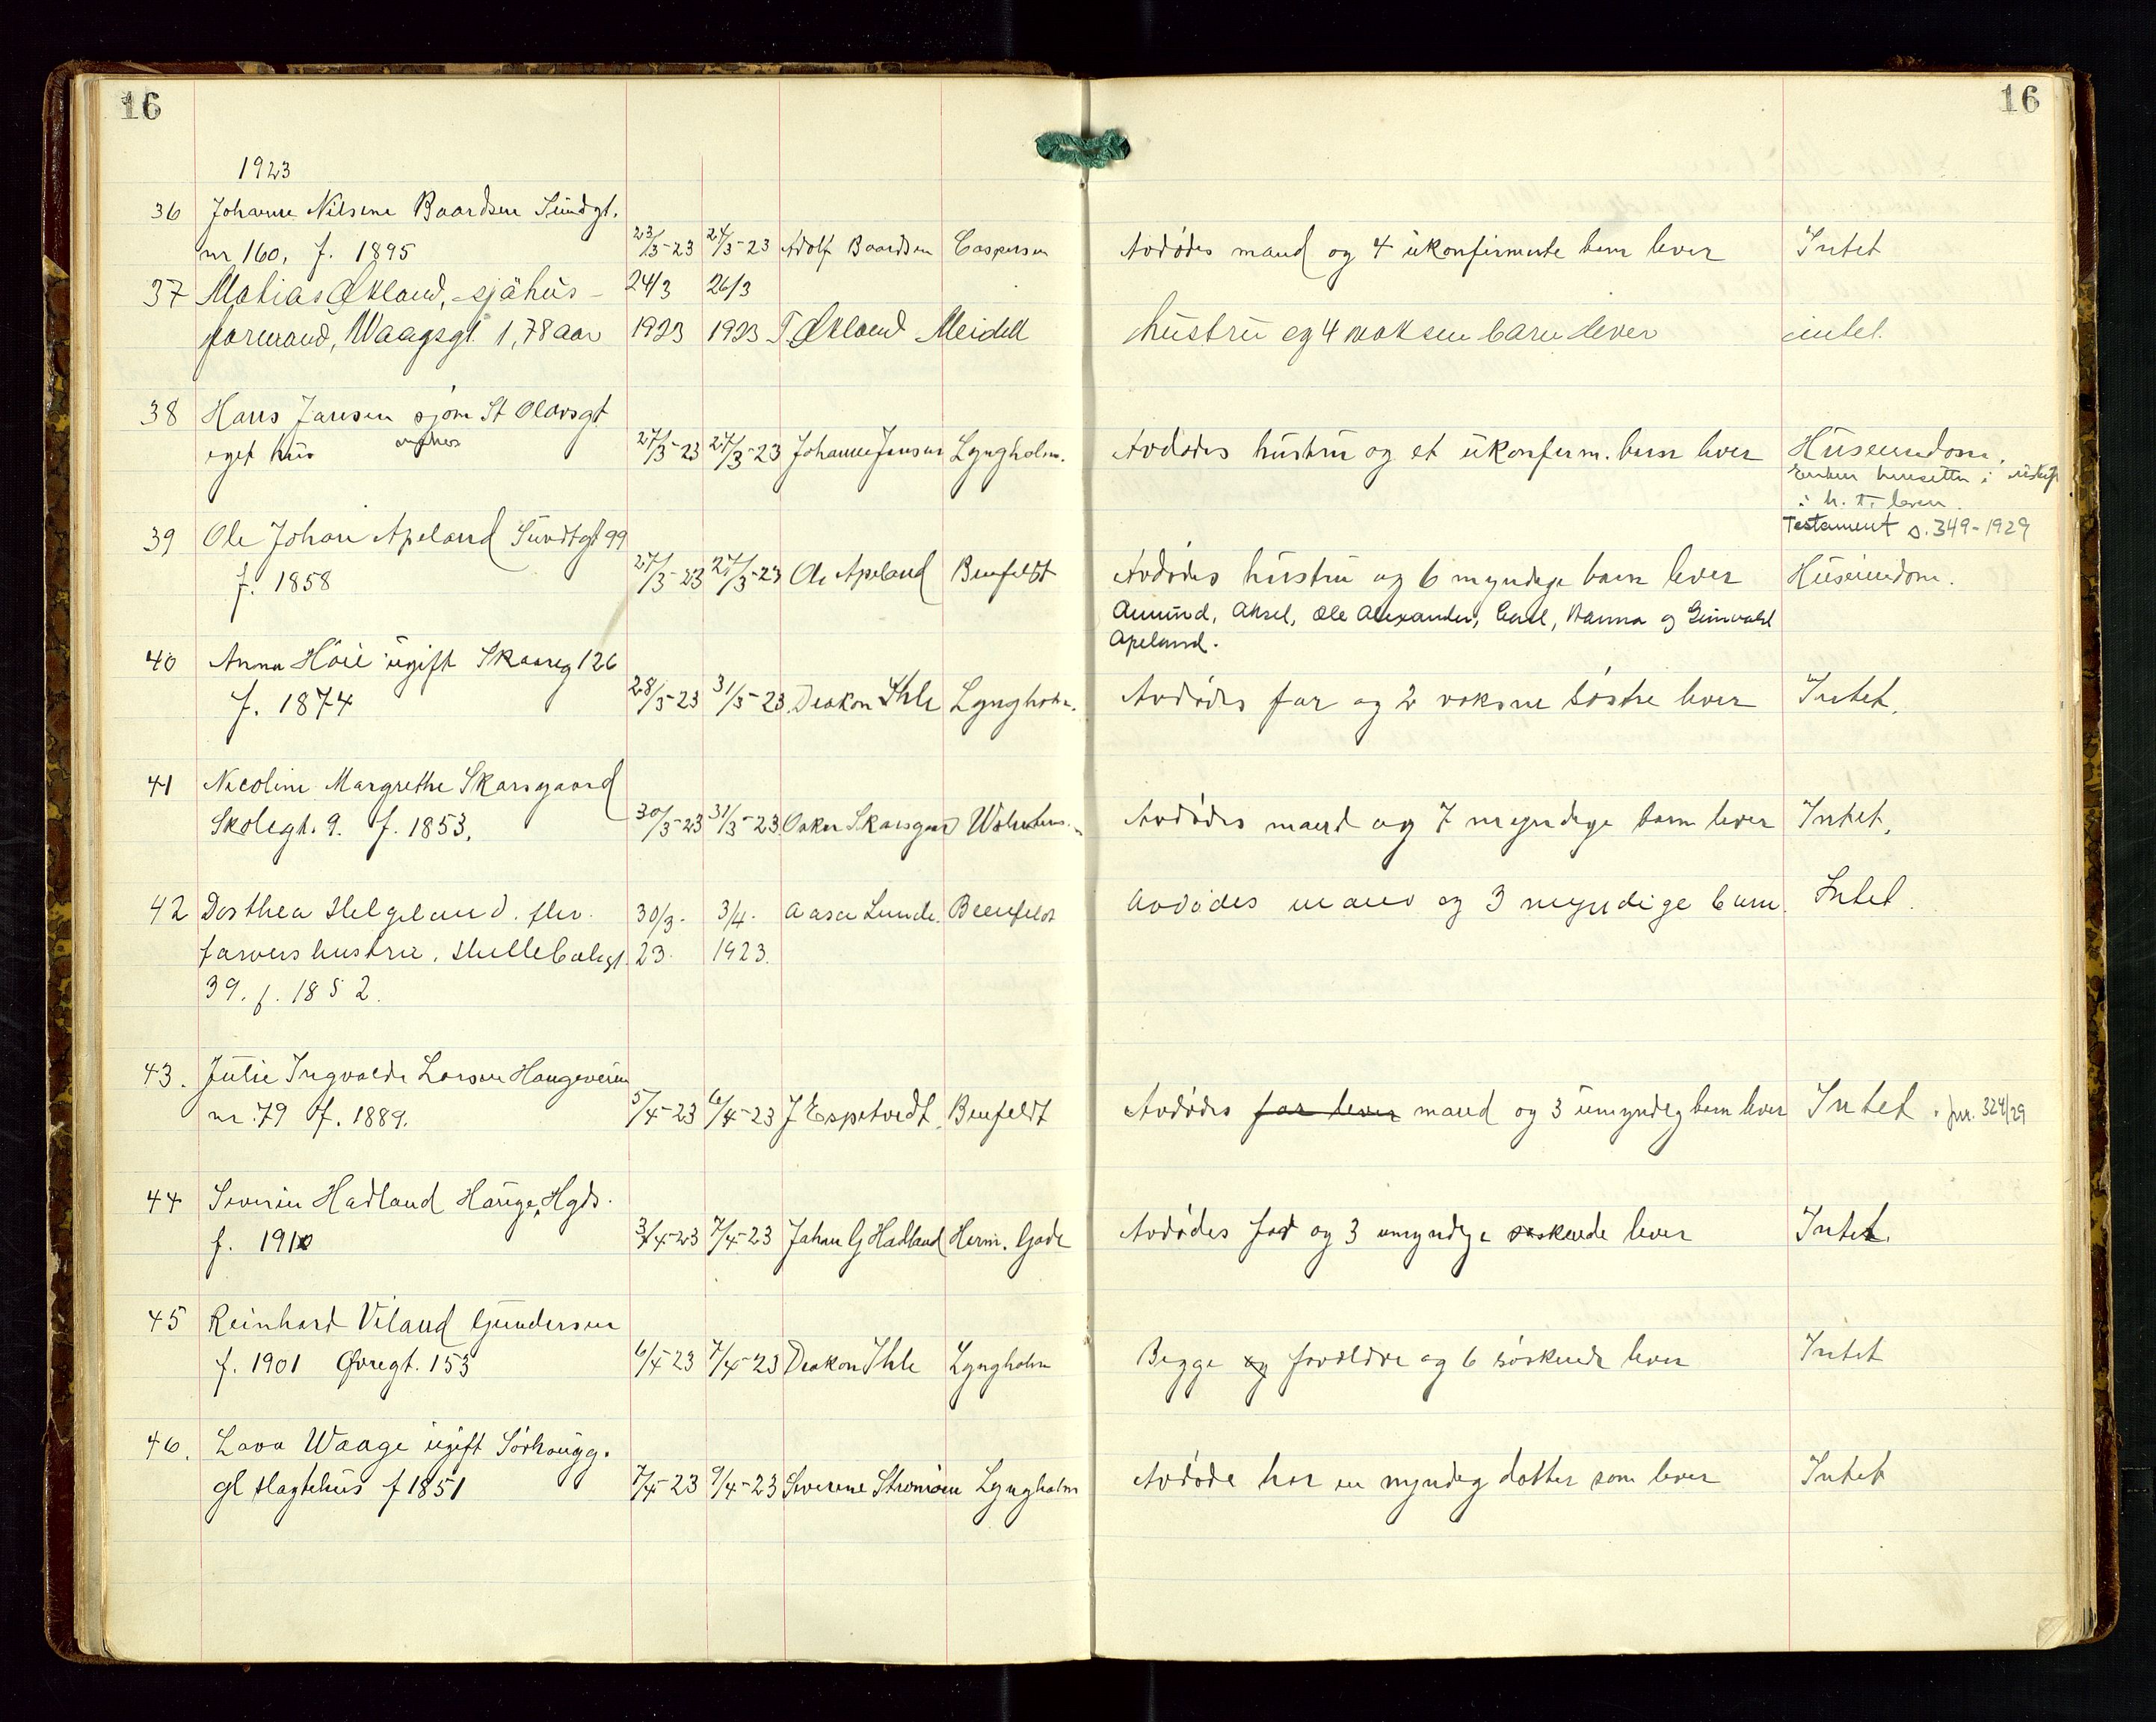 16
16
1923
36 Johanne Nilsine Baardsen Sundgt.
nr 160, f. 1895 23/3-23 24/3-23 Adolf Baardsen Caspersen Avdødes mand og 4 ukonfirmerte barn lever Intet
37 Matias Økland, sjøhus- 24/3 26/3
formand, Waagsgt 1, 78 aar 1923 1923 T. Økland Meidell hustru og 4 voksen barn lever intet.
38 Hans Jansen sjøm St Olavsgt
eget hus 27/3-23 27/3-23 Johanne Jansen Lyngholm. Avdødes hustru og et ukonfirm. barn lever Huseiendom.
Enken hensitter i uskifte
i h. t. loven.
Testament s. 349-1929
39 Ole Johan Apeland Sundtgt 99
f. 1858 27/3-23 27/3-23 Ole Apeland Beufeldt Avdødes hustru og 6 myndige barn lever Huseiendom.
Amund, Aksel, Ole Alexander, Carl, Hanna og Gunvald
Apeland.
40 Anna Høie ugift Skaareg 126
f. 1874 28/3-23 31/3-23 Diakon Ihle Lyngholm. Avdødes far og 2 voksne søstre lever Intet.
41 Nicoline Margrethe Skarsgaard
Skolegt. 9. f. 1853. 30/3-23 31/3-23 Oskar Skarsgaard Avdødes mand og 7 myndige barn lever Intet.
42 Dorthea Helgeland. 30/3- 3/4- Aasa Lunde. Beufeldt Avdødes mand og 3 myndige barn. Intet.
farvers hustru. 23. 1923.
39. f. 1852.
43. Julie Ingvalda Larsen Haugeveien
nr. 79 f. 1889. 5/4-23 6/4-23 J Espetvedt. Beufeldt Avdødes far lever mand og 3 umyndig barn lever Intet. jnr. 324/29
44 Severin Hadland Hauge, Hgds.
f. 1910 3/4-23 7/4-23 Johan G Hadland Herm. Gade Avdødes far og 3 umyndige søskende lever Intet.
45 Reinhard Viland Gundersen
f. 1901 Øvregt. 153 6/4-23 7/4-23 Diakon Ihle Lyngholm Begge og forældre og 6 søskende lever Intet
46. Lava Waage ugift Sørhaugg.
gl slagtehus f 1851 7/4-23 9/4-23 Severine Strømøen Lyngholm Avdøde har en myndig datter som lever Intet